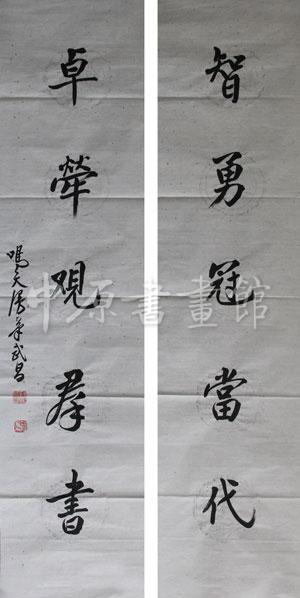 智勇冠當代
卓犖观羣書
鳴天漫筆武昌
中原書畫館